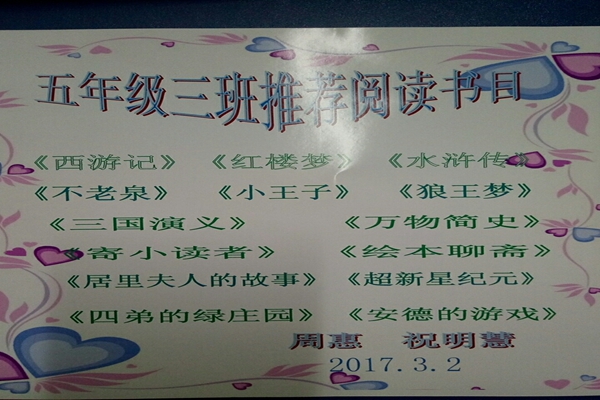 五年级三班推荐阅读书目
《西游记》 《红楼梦》 《水浒传》
《不老泉》 《小王子》 《狼王梦》
《三国演义》 《万物简史》
《寄小读者》 《绘本聊斋》
《居里夫人的故事》 《超新星纪元》
《四弟的绿庄园》 《安德的游戏》
周惠 祝明慧
2017.3.2